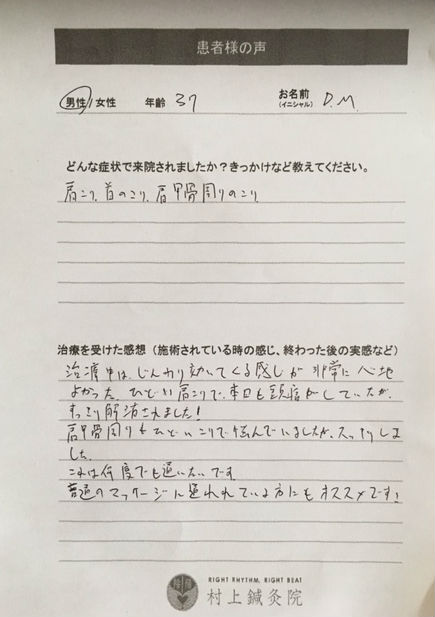 患者様の声
男性/女性 年齢 37 お名前(イニシャル) D.M.
どんな症状で来院されましたか?きっかけなど教えてください。
肩こり、首のこり、肩甲骨周りのこり
治療を受けた感想(施術されている時の感じ、終わった後の実感など)
治療中は、じんわり効いてくる感じが非常に心地
よかった。ひどい肩こりで、本日も頭痛がしていたが、
すっきり解消されました!
肩甲骨周りもひどいこりで悩んでいましたが、スッキリしま
した。
これは何度でも通いたいです。
普通のマッサージに通われている方にもオススメです!
RIGHT RHYTHM, RIGHT BEAT
村上鍼灸院